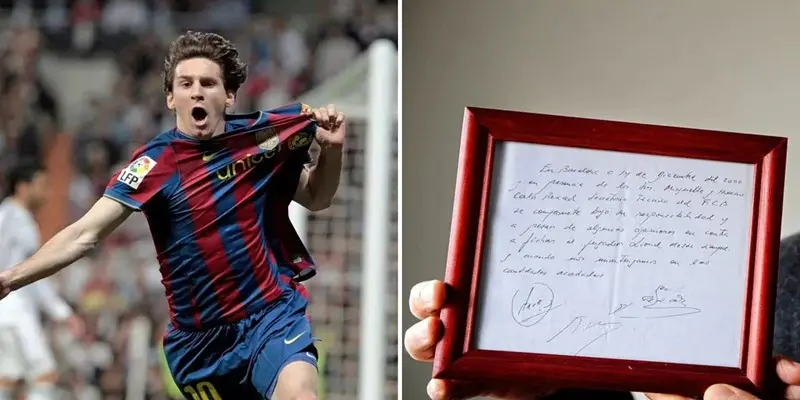 LFP
unicef
10
En Barcelona a 14 de diciembre del 2000
y en presencia de los Srs. Minguella y Horacio
Carlos Rexach Secretario Tecnico del F.C.B
se compromete bajo su responsabilidad y
a pesar de algunas opiniones en contra
a fichar al jugador Lionel Messi siempre
y cuando nos mantengamos en las
cantidades acordadas